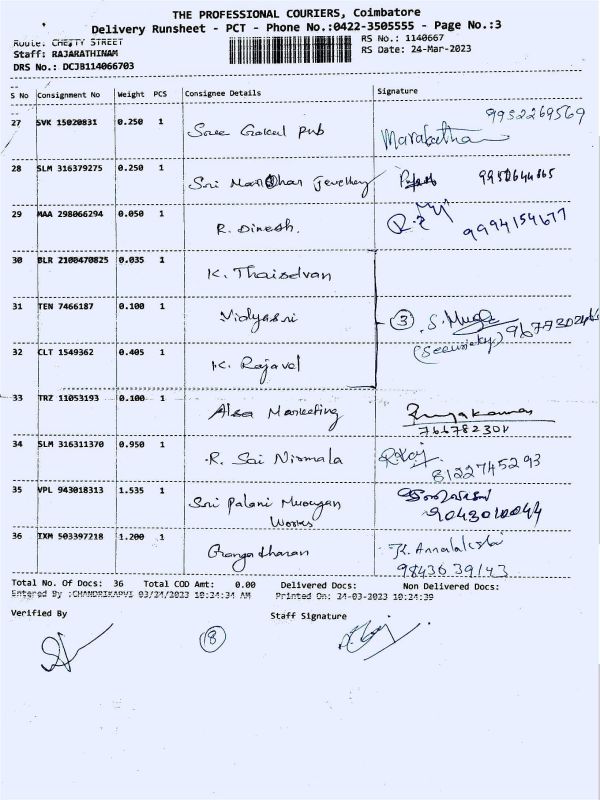 THE PROFESSIONAL COURIERS, Coimbatore
Delivery Runsheet - PCT - Phone No.:0422-3505555 - Page No.:3
Route: CHETTY STREET
RS No.: 1140667
Staff: RAJARATHINAM
RS Date: 24-Mar-2023
DRS No.: DCJB114066703
S No Consignment No Weight PCS Consignee Details Signature
27 SVK 15020831 0.250 1 Sree Gokul Pub 9952269569
28 SLM 316379275 0.250 1 Sri Manohar Jewellery
29 MAA 298066294 0.050 1 R. Dinesh. 9994154677
30 BLR 2100470825 0.035 1 K. Thaisdvan
31 TEN 7466187 0.100 1 Vidyasri 3 S.
(Security)
32 CLT 1549362 0.405 1 K. Rajavel
33 TRZ 11053193 0.100 1 Alsa Marketing
34 SLM 316311370 0.950 1 R. Sai Nirmala
8122745293
35 VPL 943018313 1.535 1 Sri Palani Murugan
Works
36 IXM 503397218 1.200 1 Gangatharan
9843639143
Total No. Of Docs: 36 Total COD Amt: 0.00 Delivered Docs: Non Delivered Docs:
Entered By :CHANDRIKAPVI 03/24/2023 10:24:34 AM Printed On: 24-03-2023 10:24:39
Verified By Staff Signature
8